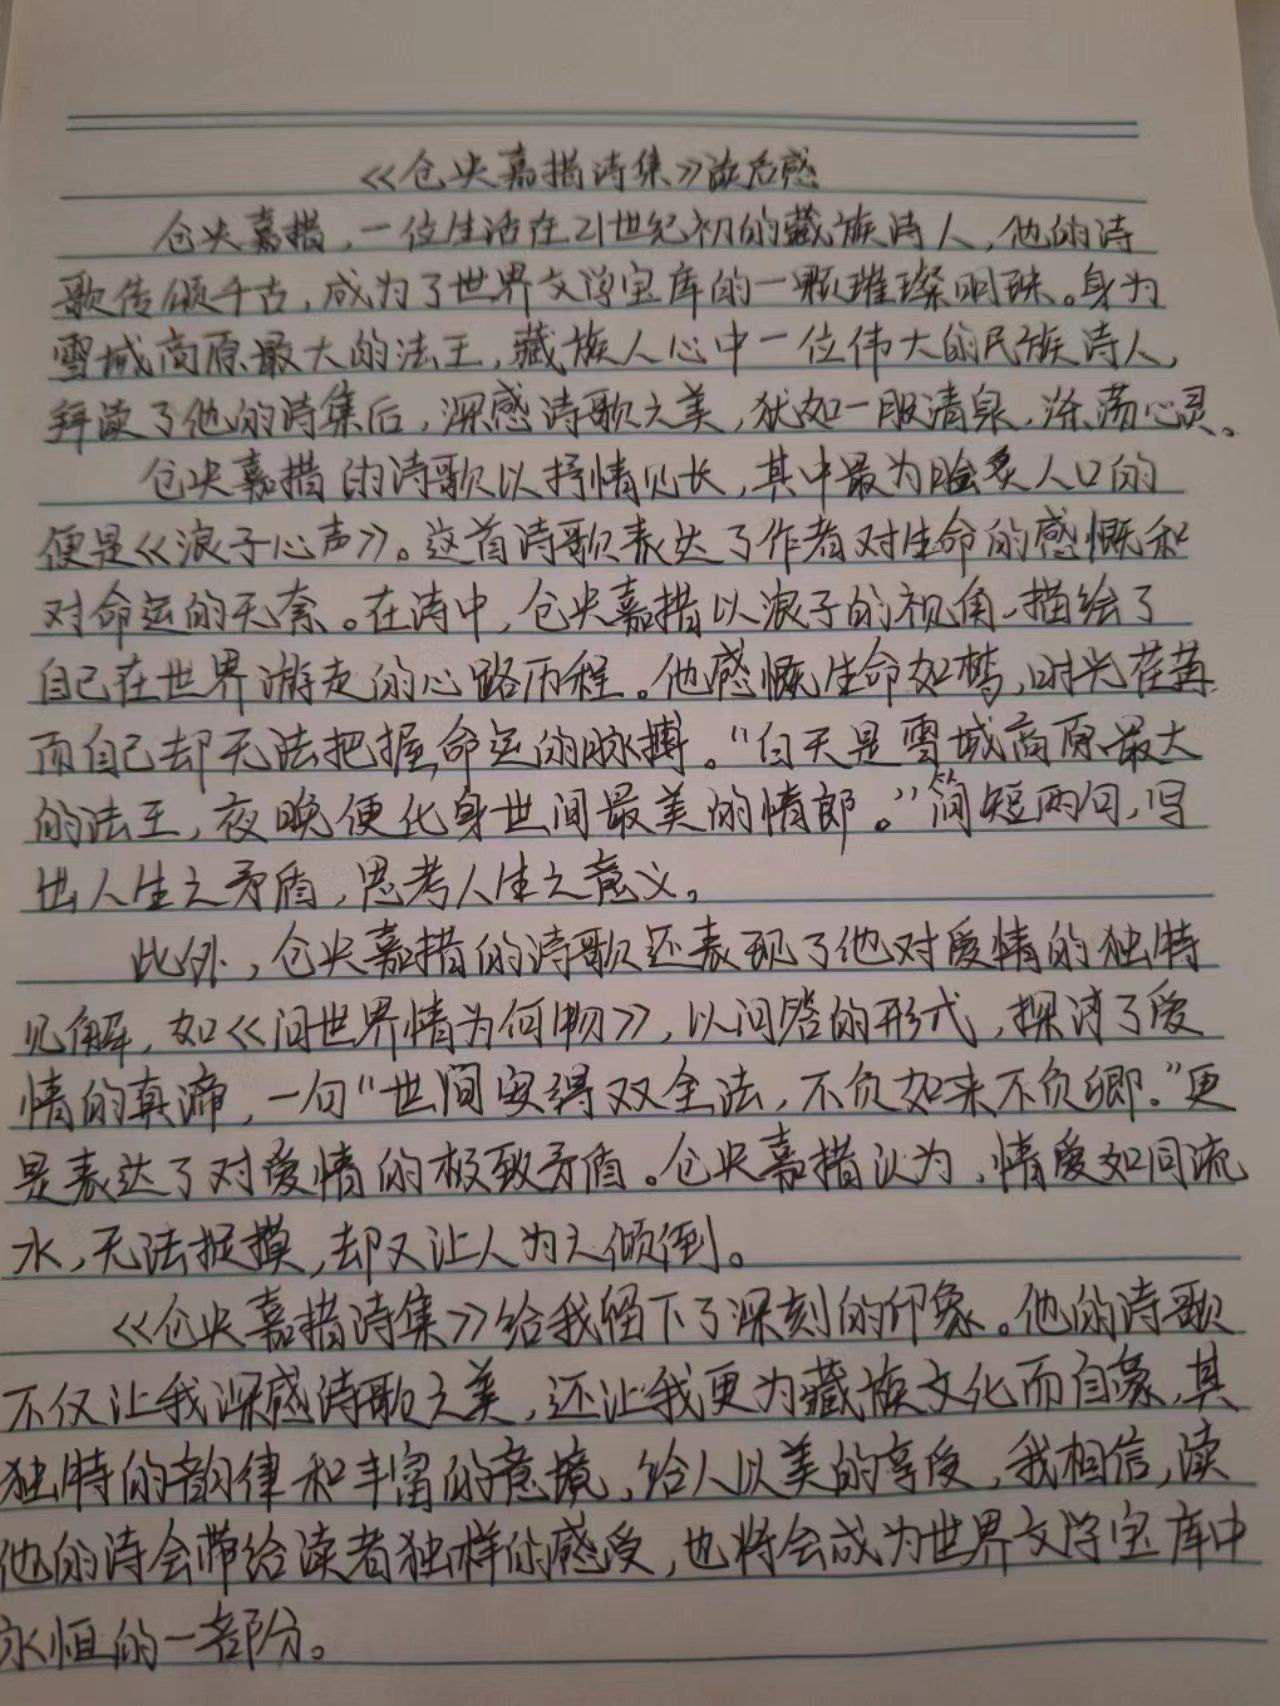 《仓央嘉措诗集》读后感
仓央嘉措，一位生活在21世纪初的藏族诗人，他的诗
歌传颂千古，成为了世界文学宝库的一颗璀璨明珠。身为
雪域高原最大的法王，藏族人心中一位伟大的民族诗人，
拜读了他的诗集后，深感诗歌之美，犹如一股清泉，涤荡心灵。
仓央嘉措的诗歌以抒情见长，其中最为脍炙人口的
便是《浪子心声》。这首诗歌表达了作者对生命的感慨和
对命运的无奈。在诗中，仓央嘉措以浪子的视角，描绘了
自己在世界游走的心路历程。他感慨生命如梦，时光荏苒
而自己却无法把握命运的脉搏。“白天是雪域高原最大
的法王，夜晚便化身世间最美的情郎。”简短两句，写
出人生之矛盾，思考人生之意义。
此外，仓央嘉措的诗歌还表现了他对爱情的独特
见解，如《问世界情为何物》，以问答的形式，探讨了爱
情的真谛，一句“世间安得双全法，不负如来不负卿。”更
是表达了对爱情的极致矛盾。仓央嘉措认为，情爱如同流
水，无法捉摸，却又让人为之倾倒。
《仓央嘉措诗集》给我留下了深刻的印象。他的诗歌
不仅让我深感诗歌之美，还让我更为藏族文化而自豪，其
独特的韵律和丰富的意境，给人以美的享受，我相信，读
他的诗会带给读者独样的感受，也将会成为世界文学宝库中
永恒的一部分。